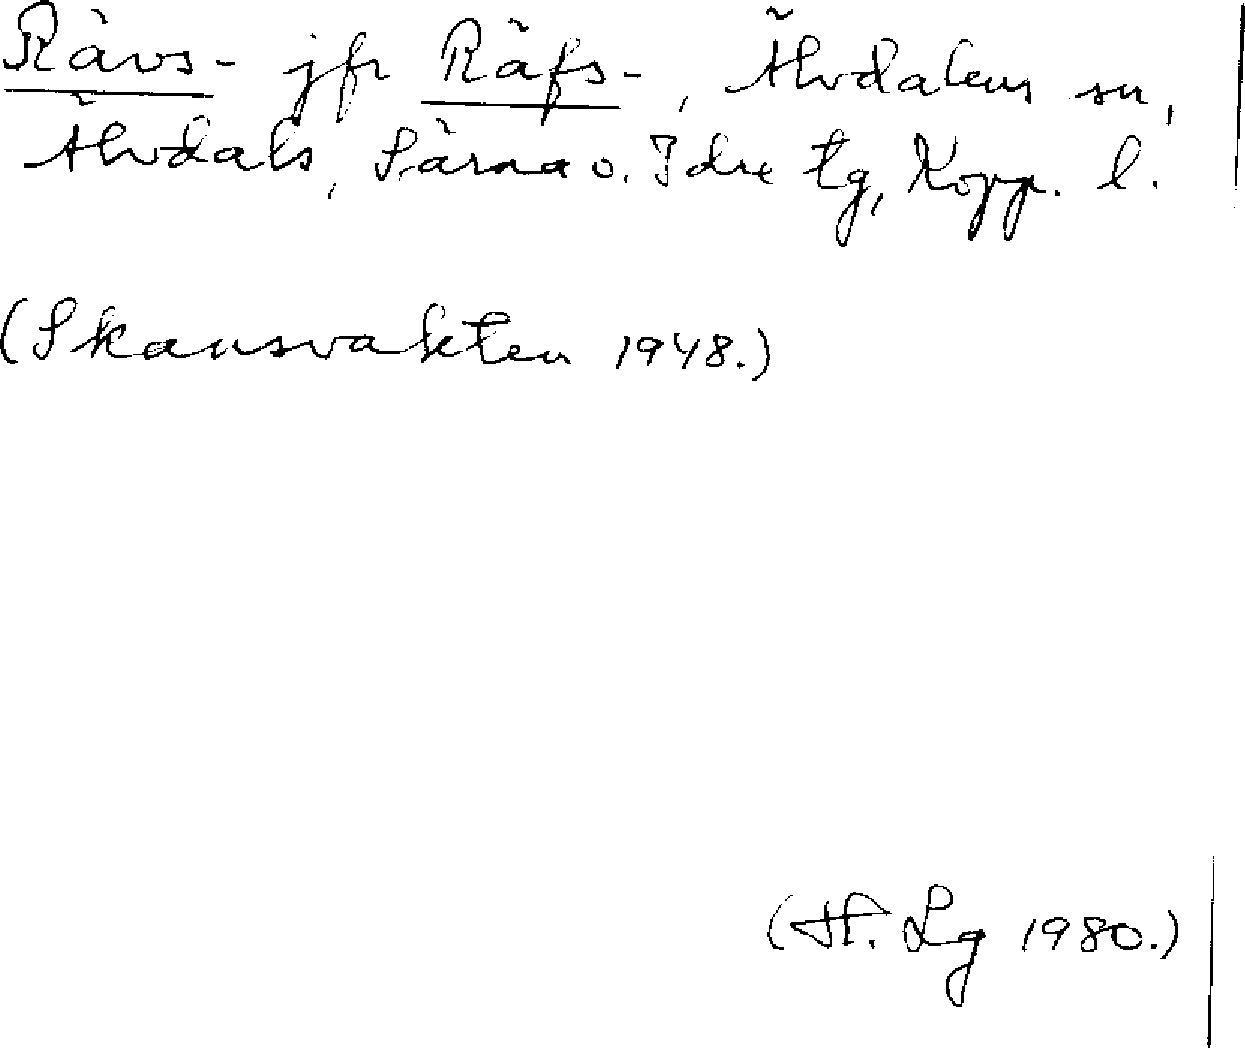 Rävs- jfr Räfs-, Älvdalens sn,
Älvdals, Särna o. Idre tg, Kopp. l.
(Skansvakten 1948.)
(H. Lg 1980.)